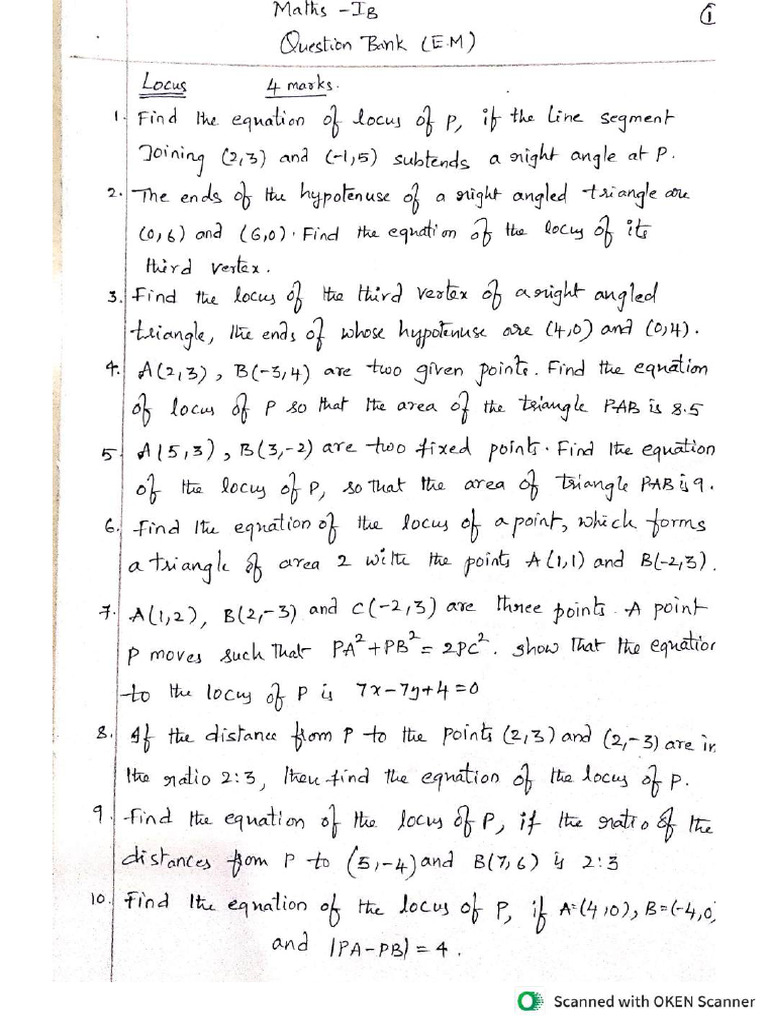 Maths - IB
①
Question Bank (E.M)
Locus 4 marks.
1. Find the equation of locus of P, if the line segment
Joining (2,3) and (-1,5) subtends a right angle at P.
2. The ends of the hypotenuse of a right angled triangle are
(0,6) and (6,0). Find the equation of the locus of its
third vertex.
3. Find the locus of the third vertex of a right angled
triangle, the ends of whose hypotenuse are (4,0) and (0,4).
4. A(2,3), B(-3,4) are two given points. Find the equation
of locus of P so that the area of the triangle PAB is 8.5
5. A(5,3), B(3,-2) are two fixed points. Find the equation
of the locus of P, so that the area of triangle PAB is 9.
6. Find the equation of the locus of a point, which forms
a triangle of area 2 with the points A(1,1) and B(-2,3).
7. A(1,2), B(2,-3) and C(-2,3) are three points. A point
P moves such that PA²+PB² = 2PC². Show that the equation
to the locus of P is 7x-7y+4=0
8. If the distance from P to the points (2,3) and (2,-3) are in
the ratio 2:3, then find the equation of the locus of P.
9. Find the equation of the locus of P, if the ratio of the
distances from P to (5,-4) and B(7,6) is 2:3
10. Find the equation of the locus of P, if A=(4,0), B=(-4,0
and |PA-PB| = 4.
Scanned with OKEN Scanner